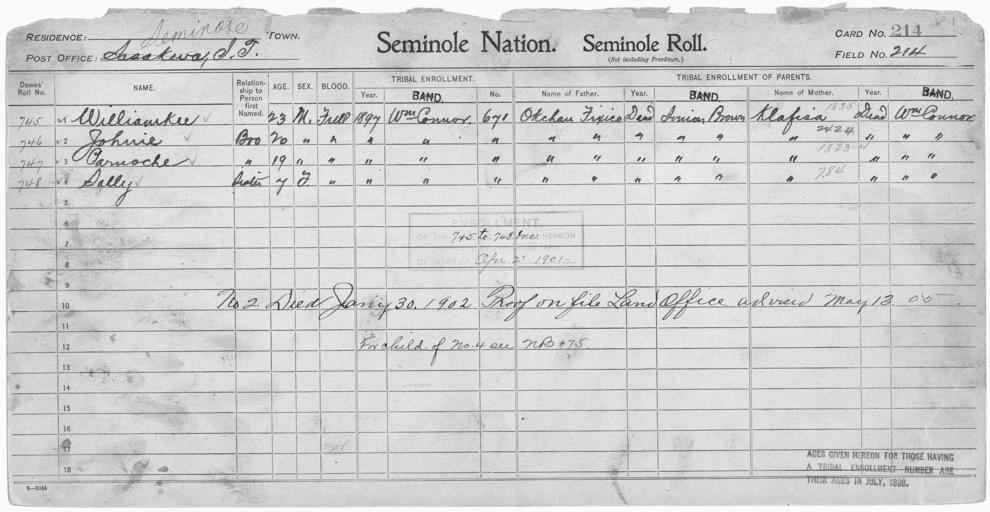 RESIDENCE: Seminole TOWN. Seminole Nation. Seminole Roll. CARD No. 214
POST OFFICE: Sasakwa, I. T. (Not including Freedmen.) FIELD No. 214
Dawes' Roll No. NAME. Relationship to Person first Named. AGE. SEX. BLOOD. TRIBAL ENROLLMENT. TRIBAL ENROLLMENT OF PARENTS.
Year. BAND. No. Name of Father. Year. BAND. Name of Mother. Year. BAND.
745 1 Williamkee 23 M. Full 1897 Wm Connor. 671 Okchau Fixico Dead Simon Brown Klafisa 1835 Dead Wm Connor
746 2 Johnie Bro 20 " " " " " " " " " " " 2424 " " "
747 3 Parnoche " 19 " " " " " " " " " " " 1823 " " "
748 4 Sally Sister 7 F. " " " " " " " " " " 784 " " "
5
6 ENROLLMENT
7 OF HEREON 745 to 748 Inc.
8 OF INTERIOR Apr. 2 1901
9
10 No 2 Died Jany 30, 1902 Proof on file Land Office advised May 13 06
11
12 For child of No. 4 see NB #75.
13
14
15
16
17 AGES GIVEN HEREON FOR THOSE HAVING
18 A TRIBAL ENROLLMENT NUMBER ARE
THEIR AGES IN JULY, 1898.
6—1044